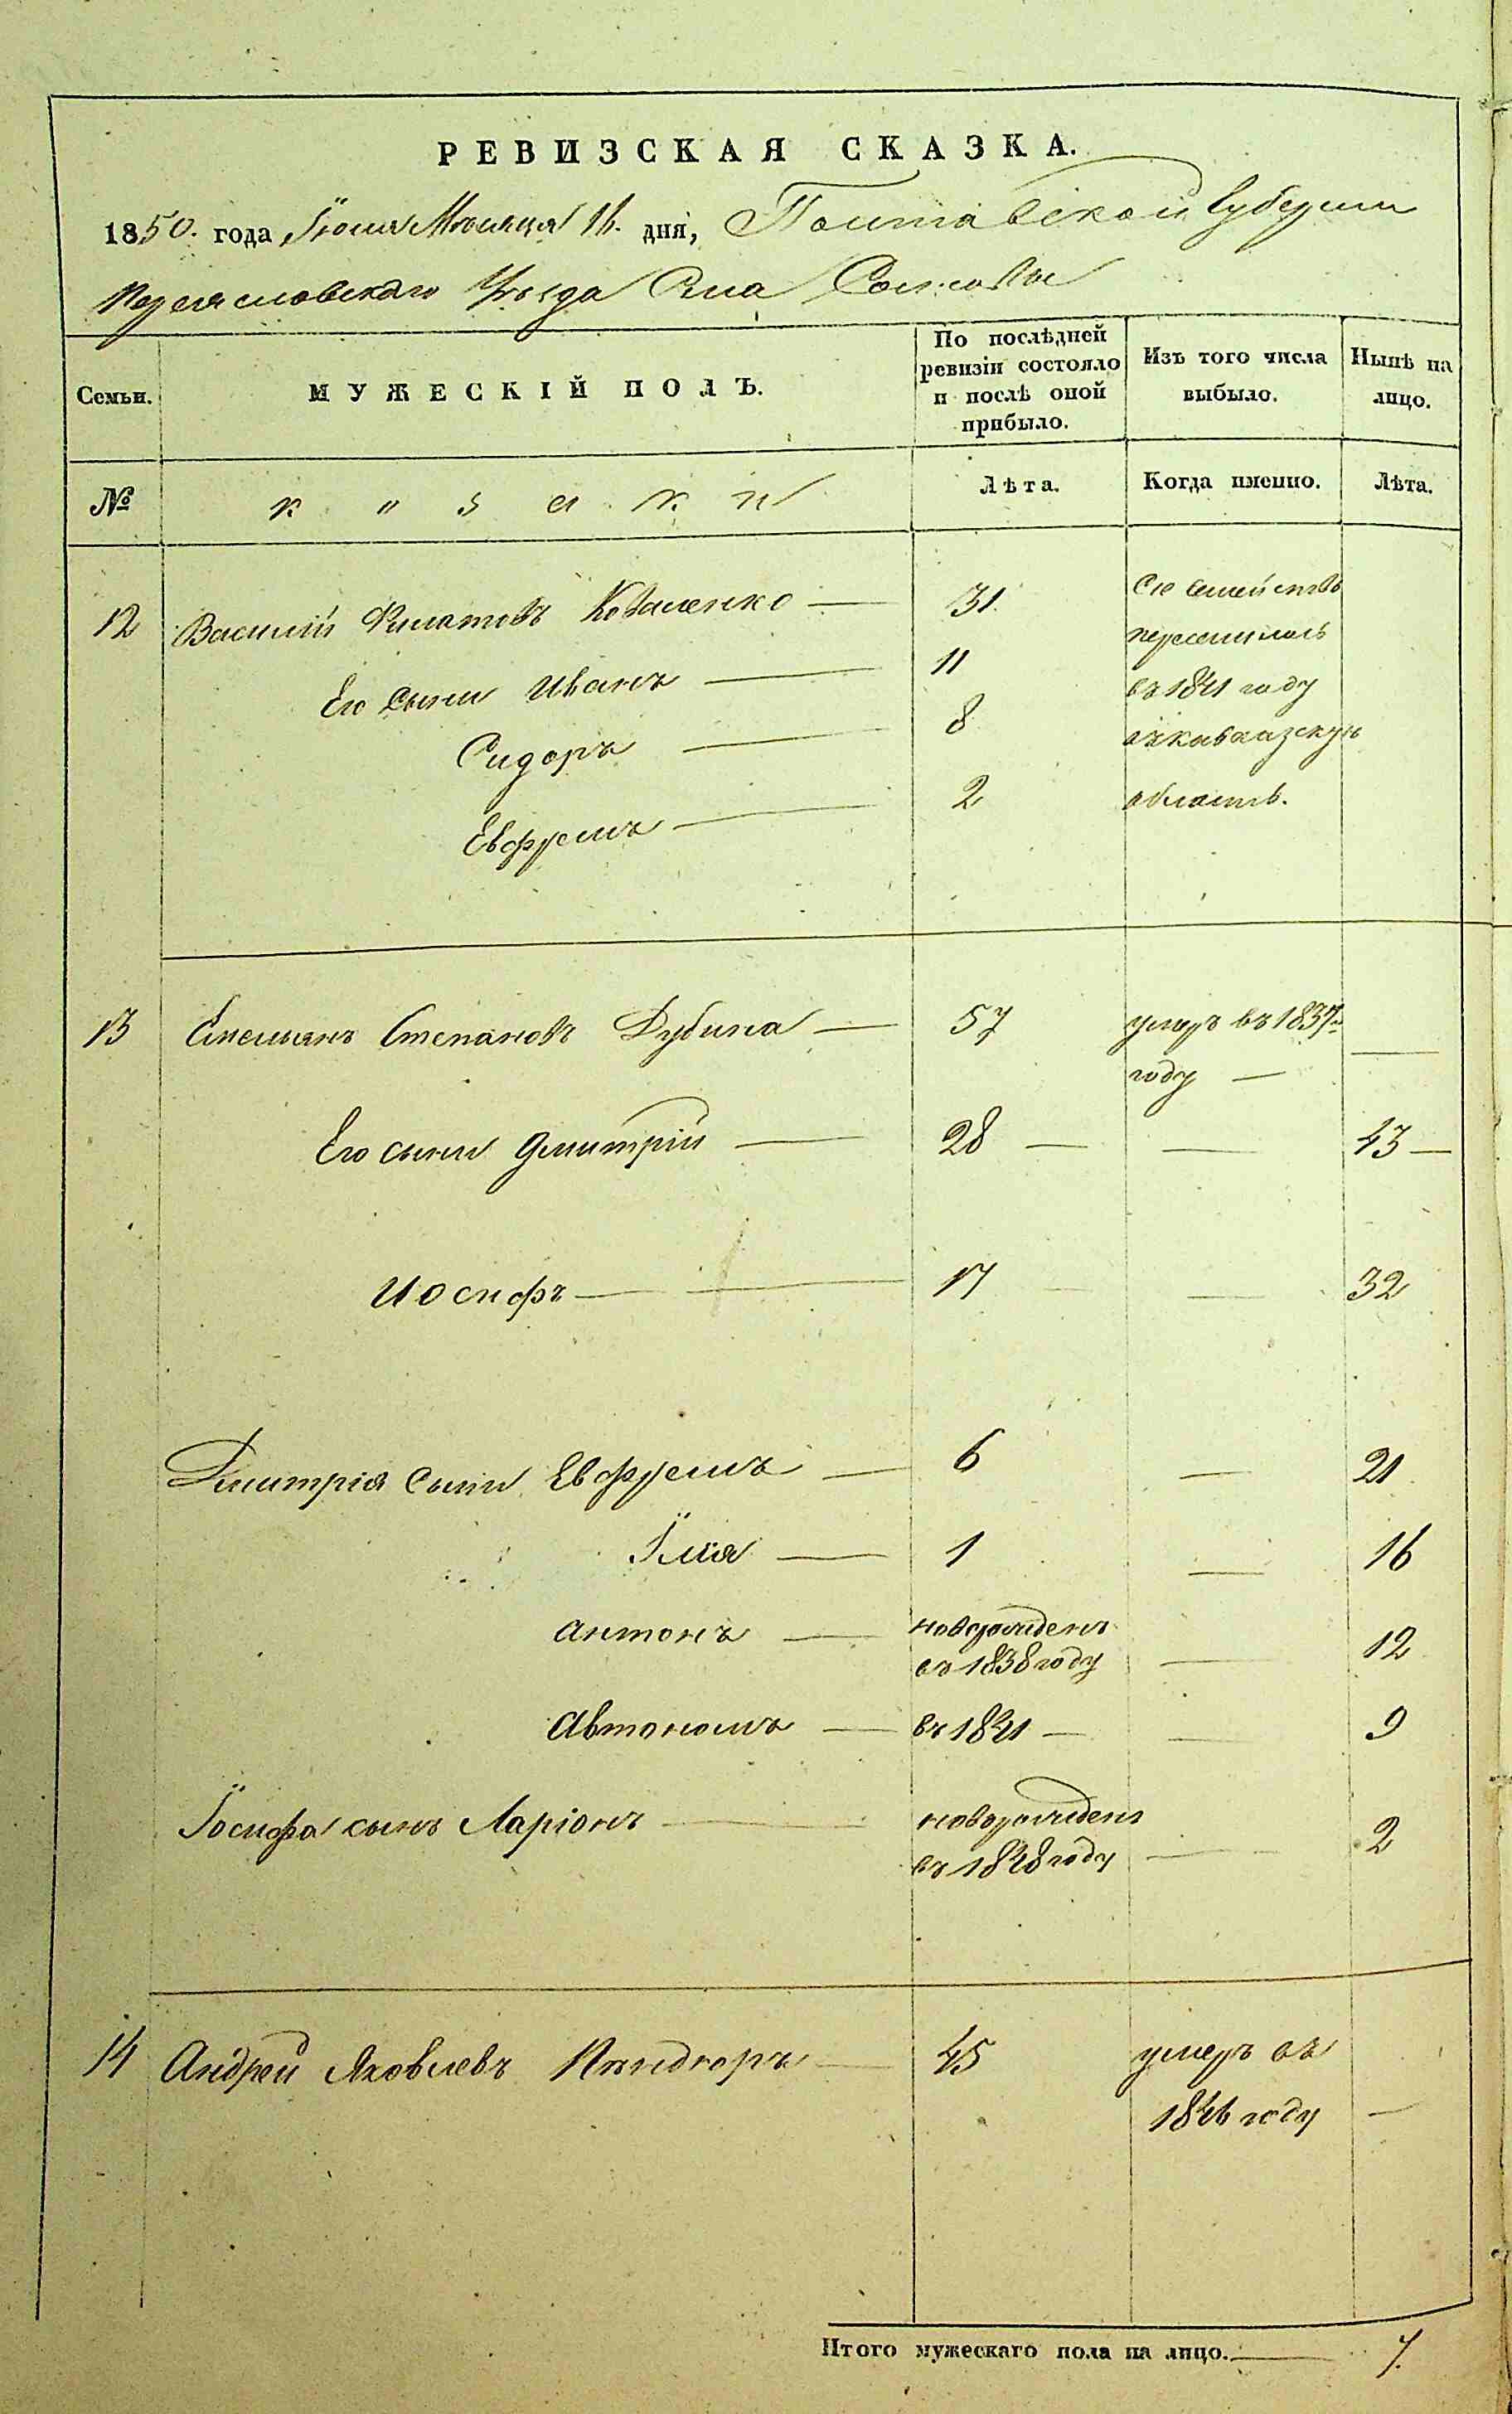 РЕВИЗСКАЯ СКАЗКА.
1850. года Іюля Мѣсяца 16. дня, Полтавской Губерніи
Переяславскаго Уѣзда Села Сошнов
Семьи.
МУЖЕСКІЙ ПОЛЪ.
По послѣдней ревизіи состояло и послѣ оной прибыло.
Изъ того числа выбыло.
Нынѣ на лицо.
№
к о з а к и
Лѣта.
Когда именно.
Лѣта.
12 Василий Филатовъ Коваленко — 31. Сіе семейство
переселилось
Его сыни Иванъ — 11 въ 1841 году
Сидоръ — 8 въ кавказскую
Евфремъ — 2 область.
13 Емельянъ Степановъ Дубина — 57 умеръ въ 1837м —
году —
Его сыни Дмитрій — 28 — — 43 —
Иосифъ — — 17 — — 32
Дмитрія сыни Евфремъ — 6 — 21
Іллія — 1 — 16
Антонъ — новорожденъ
въ 1838 году — 12
Автономъ — въ 1841 — — 9
Іосифа сынъ Ларіонъ — новорожденъ
въ 1848 году — 2
14 Андрей Яковлевъ — 45 умеръ въ
1846 году —
Итого мужескаго пола на лицо. — 7.